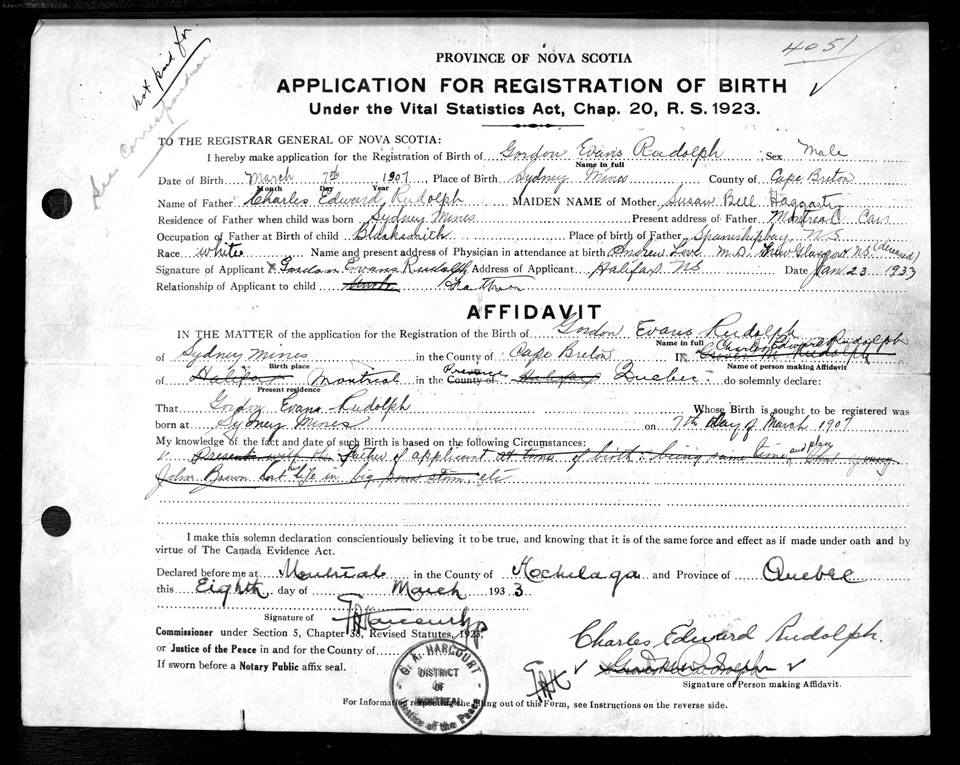 not paid for
See Correspondence
4051
PROVINCE OF NOVA SCOTIA
APPLICATION FOR REGISTRATION OF BIRTH
Under the Vital Statistics Act, Chap. 20, R. S. 1923.
TO THE REGISTRAR GENERAL OF NOVA SCOTIA:
I hereby make application for the Registration of Birth of Gordon Evans Rudolph Sex Male
Name in full
Date of Birth March 7th 1907, Place of Birth Sydney Mines County of Cape Breton
Month Day Year
Name of Father Charles Edward Rudolph MAIDEN NAME of Mother Susan Bell Haggarty
Residence of Father when child was born Sydney Mines Present address of Father Montreal Can
Occupation of Father at Birth of child Blacksmith Place of birth of Father Spanishipbay, N.S.
Race white Name and present address of Physician in attendance at birth Andrew Love M.D. New Glasgow N.S. (deceased)
Signature of Applicant x Gordon Evans Rudolph Address of Applicant Halifax NS Date Jan 23 1933
Relationship of Applicant to child
AFFIDAVIT
IN THE MATTER of the application for the Registration of the Birth of Gordon Evans Rudolph
Name in full Charles Edward Rudolph
of Sydney Mines in the County of Cape Breton I, Grover M. Rudolph
Birth place Name of person making Affidavit
of Halifax Montreal in the Province County of Halifax Quebec. do solemnly declare:
Present residence
That Gordon Evans Rudolph Whose Birth is sought to be registered was
born at Sydney Mines on 7th Day of March 1907
My knowledge of the fact and date of such Birth is based on the following Circumstances:
Present with the Father of applicant at time of birth: being same time and place that young
John Brown lost his life in big snow storm etc
I make this solemn declaration conscientiously believing it to be true, and knowing that it is of the same force and effect as if made under oath and by
virtue of The Canada Evidence Act.
Declared before me at Montreal in the County of Hochelaga and Province of Quebec
this Eighth day of March 1933.
Signature of G A Harcourt J.P.
Commissioner under Section 5, Chapter 38, Revised Statutes, 1923,
or Justice of the Peace in and for the County of
If sworn before a Notary Public affix seal.
Charles Edward Rudolph
Signature of Person making Affidavit.
G. A. HARCOURT
DISTRICT
OF
MONTREAL
Justice of the Peace
For Information respecting the filling out of this Form, see Instructions on the reverse side.